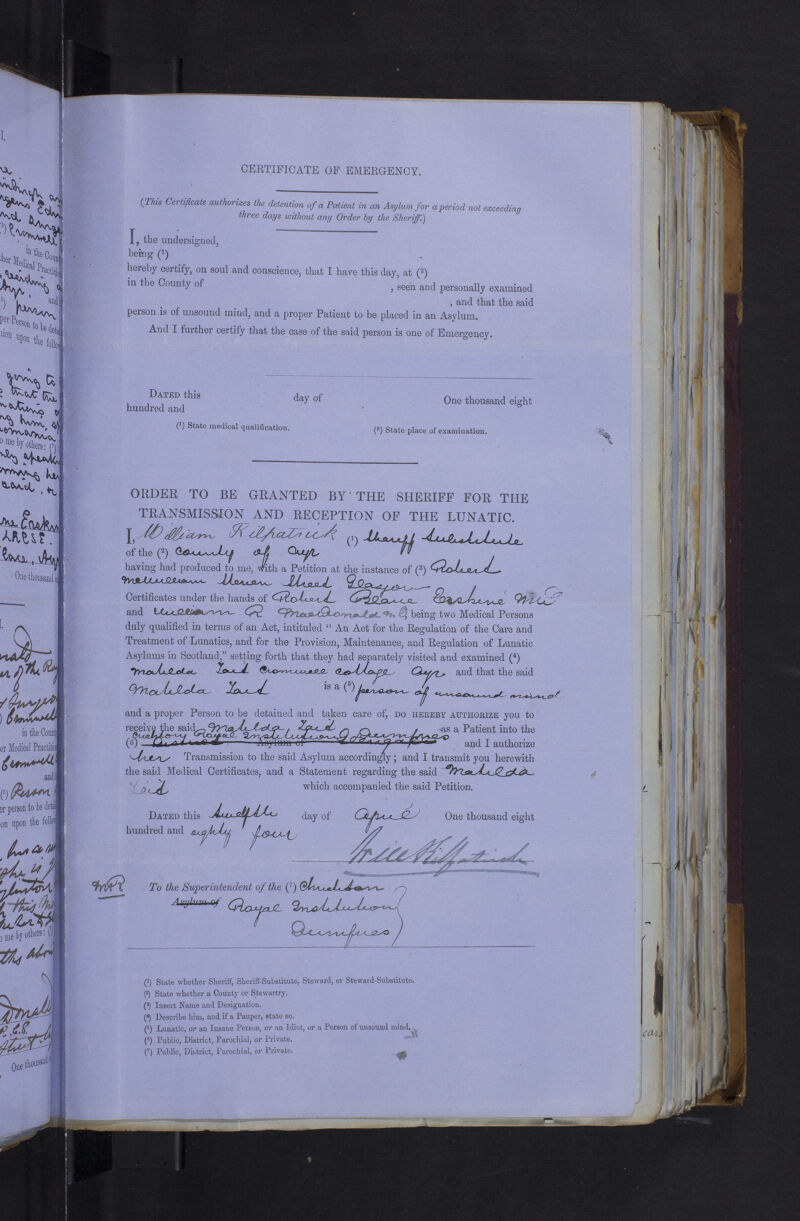 CERTIFICATE OF EMERGENCY.
(This Certificate authorizes the detention of a Patient in an Asylum for a period not exceeding
three days without any Order by the Sheriff.)
I, the undersigned,
being (¹)
hereby certify, on soul and conscience, that I have this day, at (²)
in the County of , seen and personally examined
, and that the said
person is of unsound mind, and a proper Patient to be placed in an Asylum.
And I further certify that the case of the said person is one of Emergency.
DATED this day of One thousand eight
hundred and
(¹) State medical qualification. (²) State place of examination.
ORDER TO BE GRANTED BY THE SHERIFF FOR THE
TRANSMISSION AND RECEPTION OF THE LUNATIC.
I, William Kilpatrick (¹) Sheriff Substitute
of the (²) County of Ayr
having had produced to me, with a Petition at the instance of (³) Robert
McWilliam Street Glasgow
Certificates under the hands of Robert Blair Erskine M.D.
and William R MacDonald M.D, being two Medical Persons
duly qualified in terms of an Act, intituled "An Act for the Regulation of the Care and
Treatment of Lunatics, and for the Provision, Maintenance, and Regulation of Lunatic
Asylums in Scotland," setting forth that they had separately visited and examined (⁴)
Matilda Laid Cromwell Cottage Ayr and that the said
Matilda Laid is a (⁵) person of unsound mind
and a proper Person to be detained and taken care of, DO HEREBY AUTHORIZE you to
receive the said Matilda Laid as a Patient into the
Crichton Royal Institution Dumfries
(6) District Asylum of and I authorize
her Transmission to the said Asylum accordingly; and I transmit you herewith
the said Medical Certificates, and a Statement regarding the said Matilda
Laid which accompanied the said Petition.
DATED this twelfth day of April One thousand eight
hundred and eighty four
Will Kilpatrick
To the Superintendent of the (⁷) Crichton
Asylum of Royal Institution
Dumfries
(¹) State whether Sheriff, Sheriff-Substitute, Steward, or Steward-Substitute.
(²) State whether a County or Stewartry.
(³) Insert Name and Designation.
(⁴) Describe him, and if a Pauper, state so.
(⁵) Lunatic, or an Insane Person, or an Idiot, or a Person of unsound mind.
(⁶) Public, District, Parochial, or Private.
(⁷) Public, District, Parochial, or Private.